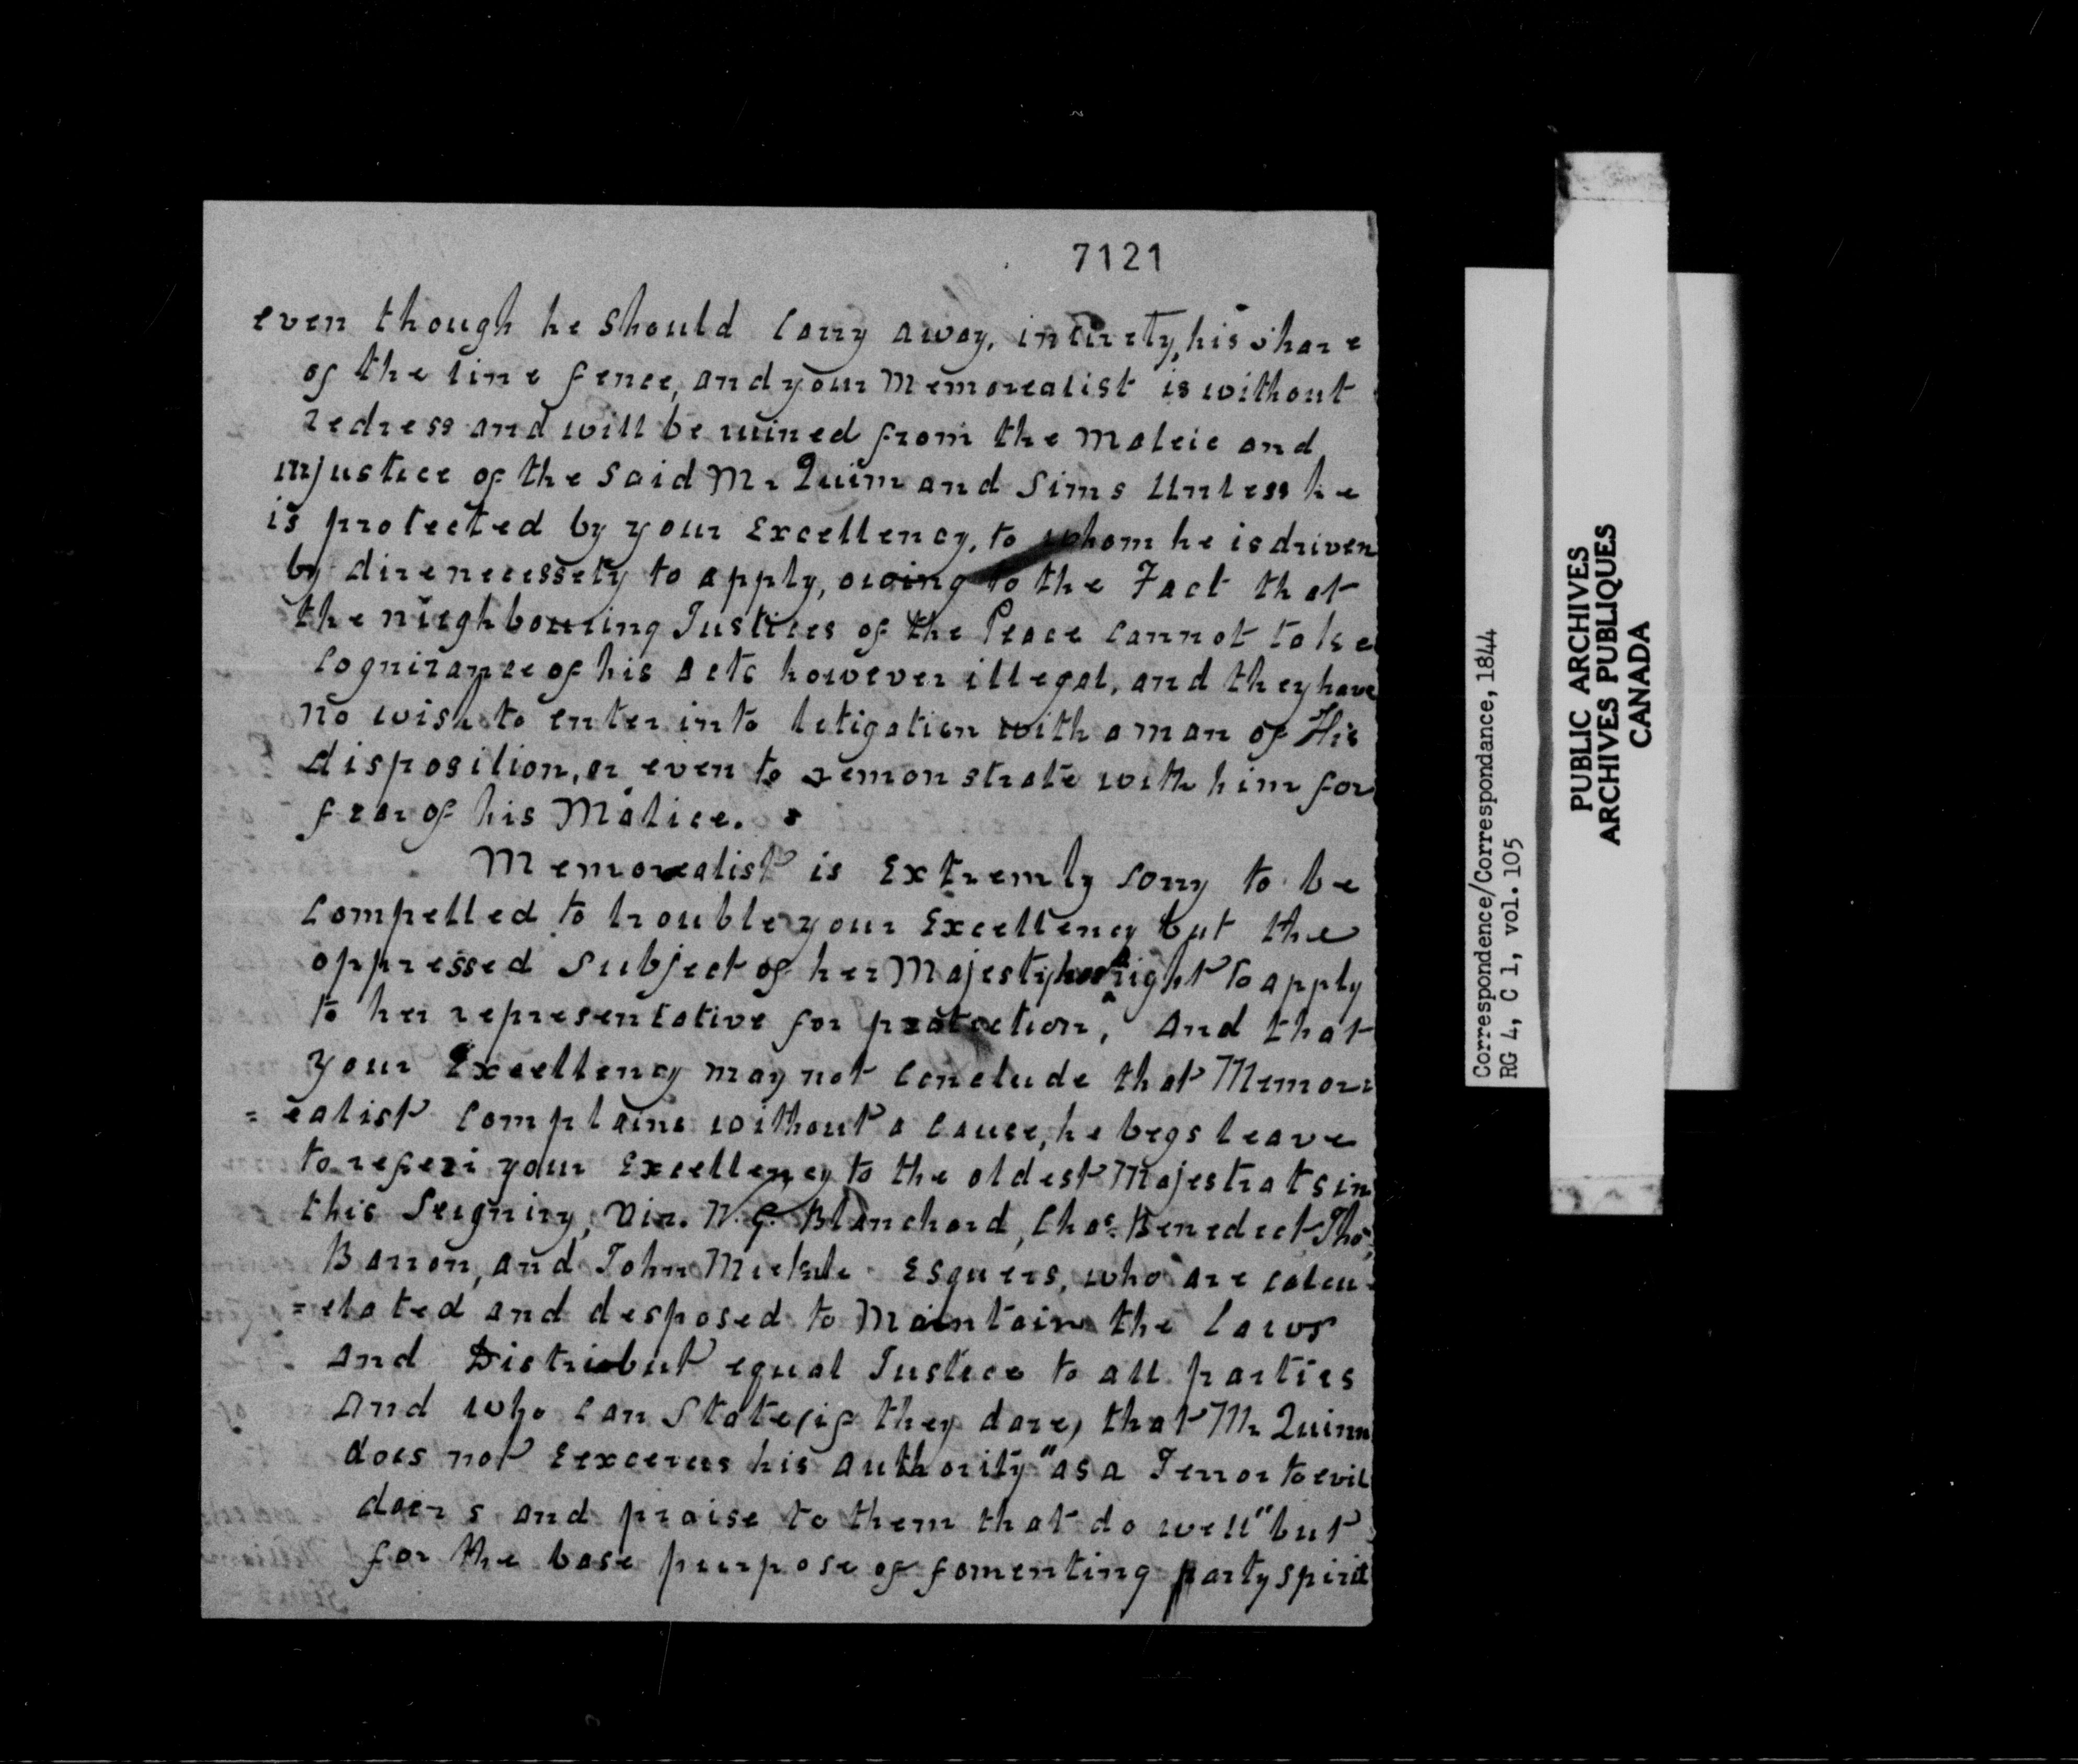 7121
even though he should carry away, intirety, his share
of the line fence, and your Memorealist is without
redress and will be ruined from the Maleie and
injustice of the said Mr Quinn and Sims Unless he
is protected by your Excellency, to whom he is driven
by dire necessety to apply, owing to the Fact that
the nieghbouring Justices of the Peace cannot take
cognizance of his acts however illegal, and they have
no wish to enter into letigation with a man of His
disposition, or even to remonstrate with him for
fear of his Malice.
Memorealist is Extremly sorry to be
compelled to trouble your Excellency but the
oppressed subject of her Majesty has a right to apply
to her representative for protection, And that
your Excellency may not conclude that Memor=
=ealist complains without a cause, he begs leave
to referr your Excellency to the oldest Majestrats in
this Seigniry, Viz. N. G. Blanchard, Chas. Benedect Thos.
Barron, and John Esquers, who are calcu=
=elated and desposed to Maintain the Laws
And Distribut equal Justice to all parties
And who can state (if they dare) that Mr Quinn
does not his authority "as a Terror to evil
doers and praise to them that do well" but
for the base purpose of fomenting party spirit
Correspondence/Correspondance, 1844
RG 4, C 1, vol. 105
PUBLIC ARCHIVES
ARCHIVES PUBLIQUES
CANADA